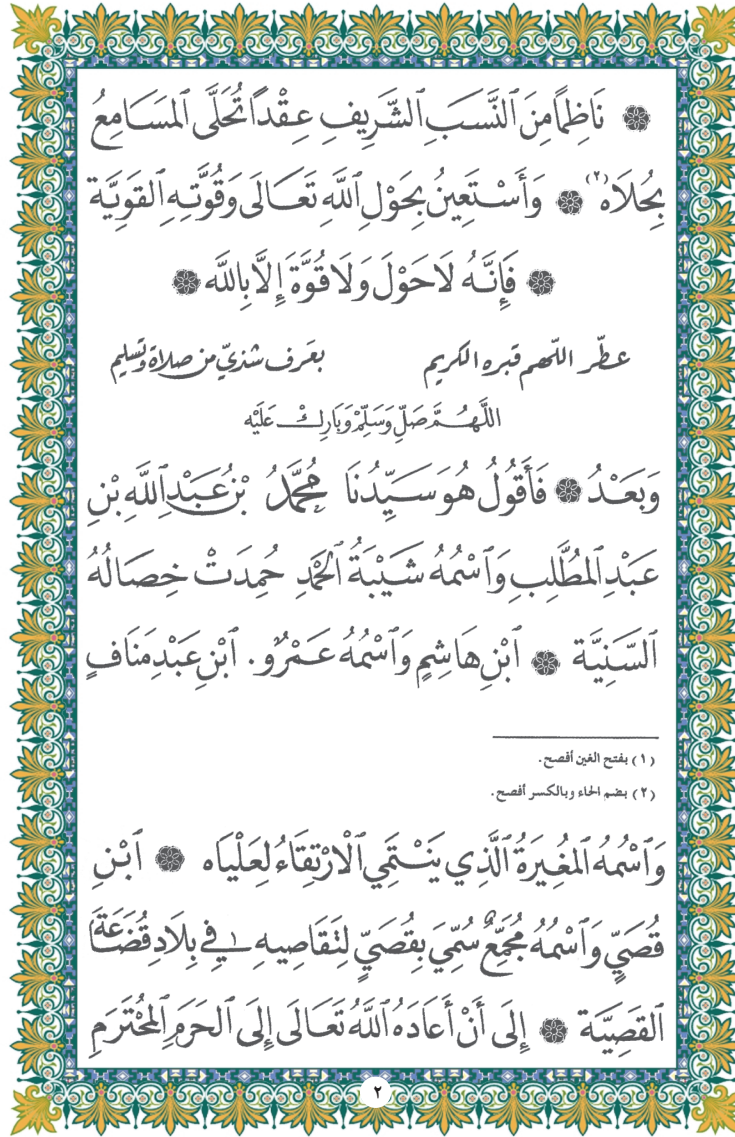 ۞ نَاظِمًا مِنَ ٱلنَّسَبِ ٱلشَّرِيفِ عِقْدًا تُحَلَّى ٱلمَسَامِعُ
بِحُلَاهُ(٢) ۞ وَأَسْتَعِينُ بِحَوْلِ ٱللَّهِ تَعَالَى وَقُوَّتِهِ ٱلقَوِيَّة
۞ فَإِنَّهُ لَا حَوْلَ وَلَا قُوَّةَ إِلَّا بِاللَّه ۞
عطّر اللّهم قبره الكريم بعَرف شذيّ من صلاة وتسليم
اللَّهُمَّ صَلِّ وَسَلِّمْ وَبَارِكْ عَلَيْه
وَبَعْدُ ۞ فَأَقُولُ هُوَ سَيِّدُنَا مُحَمَّدُ بْنُ عَبْدِ ٱللَّهِ بْنِ
عَبْدِ ٱلمُطَّلِبِ وَٱسْمُهُ شَيْبَةُ ٱلحَمْدِ حُمِدَتْ خِصَالُهُ
ٱلسَّنِيَّة ۞ ٱبْنِ هَاشِمٍ وَٱسْمُهُ عَمْرٌو. ٱبْنِ عَبْدِ مَنَافٍ
(١) بفتح الغين أفصح.
(٢) بضم الحاء وبالكسر أفصح.
وَٱسْمُهُ ٱلمُغِيرَةُ ٱلَّذِي يَنْتَمِي ٱلْارْتِقَاءُ لِعَلْيَاه ۞ ٱبْنِ
قُصَيٍّ وَٱسْمُهُ مُجَمِّعٌ سُمِّيَ بِقُصَيٍّ لِتَقَاصِيهِ فِي بِلَادِ قُضَاعَةَ
ٱلقَصِيَّة ۞ إِلَى أَنْ أَعَادَهُ ٱللَّهُ تَعَالَى إِلَى ٱلحَرَمِ ٱلمُحْتَرَمِ
٢